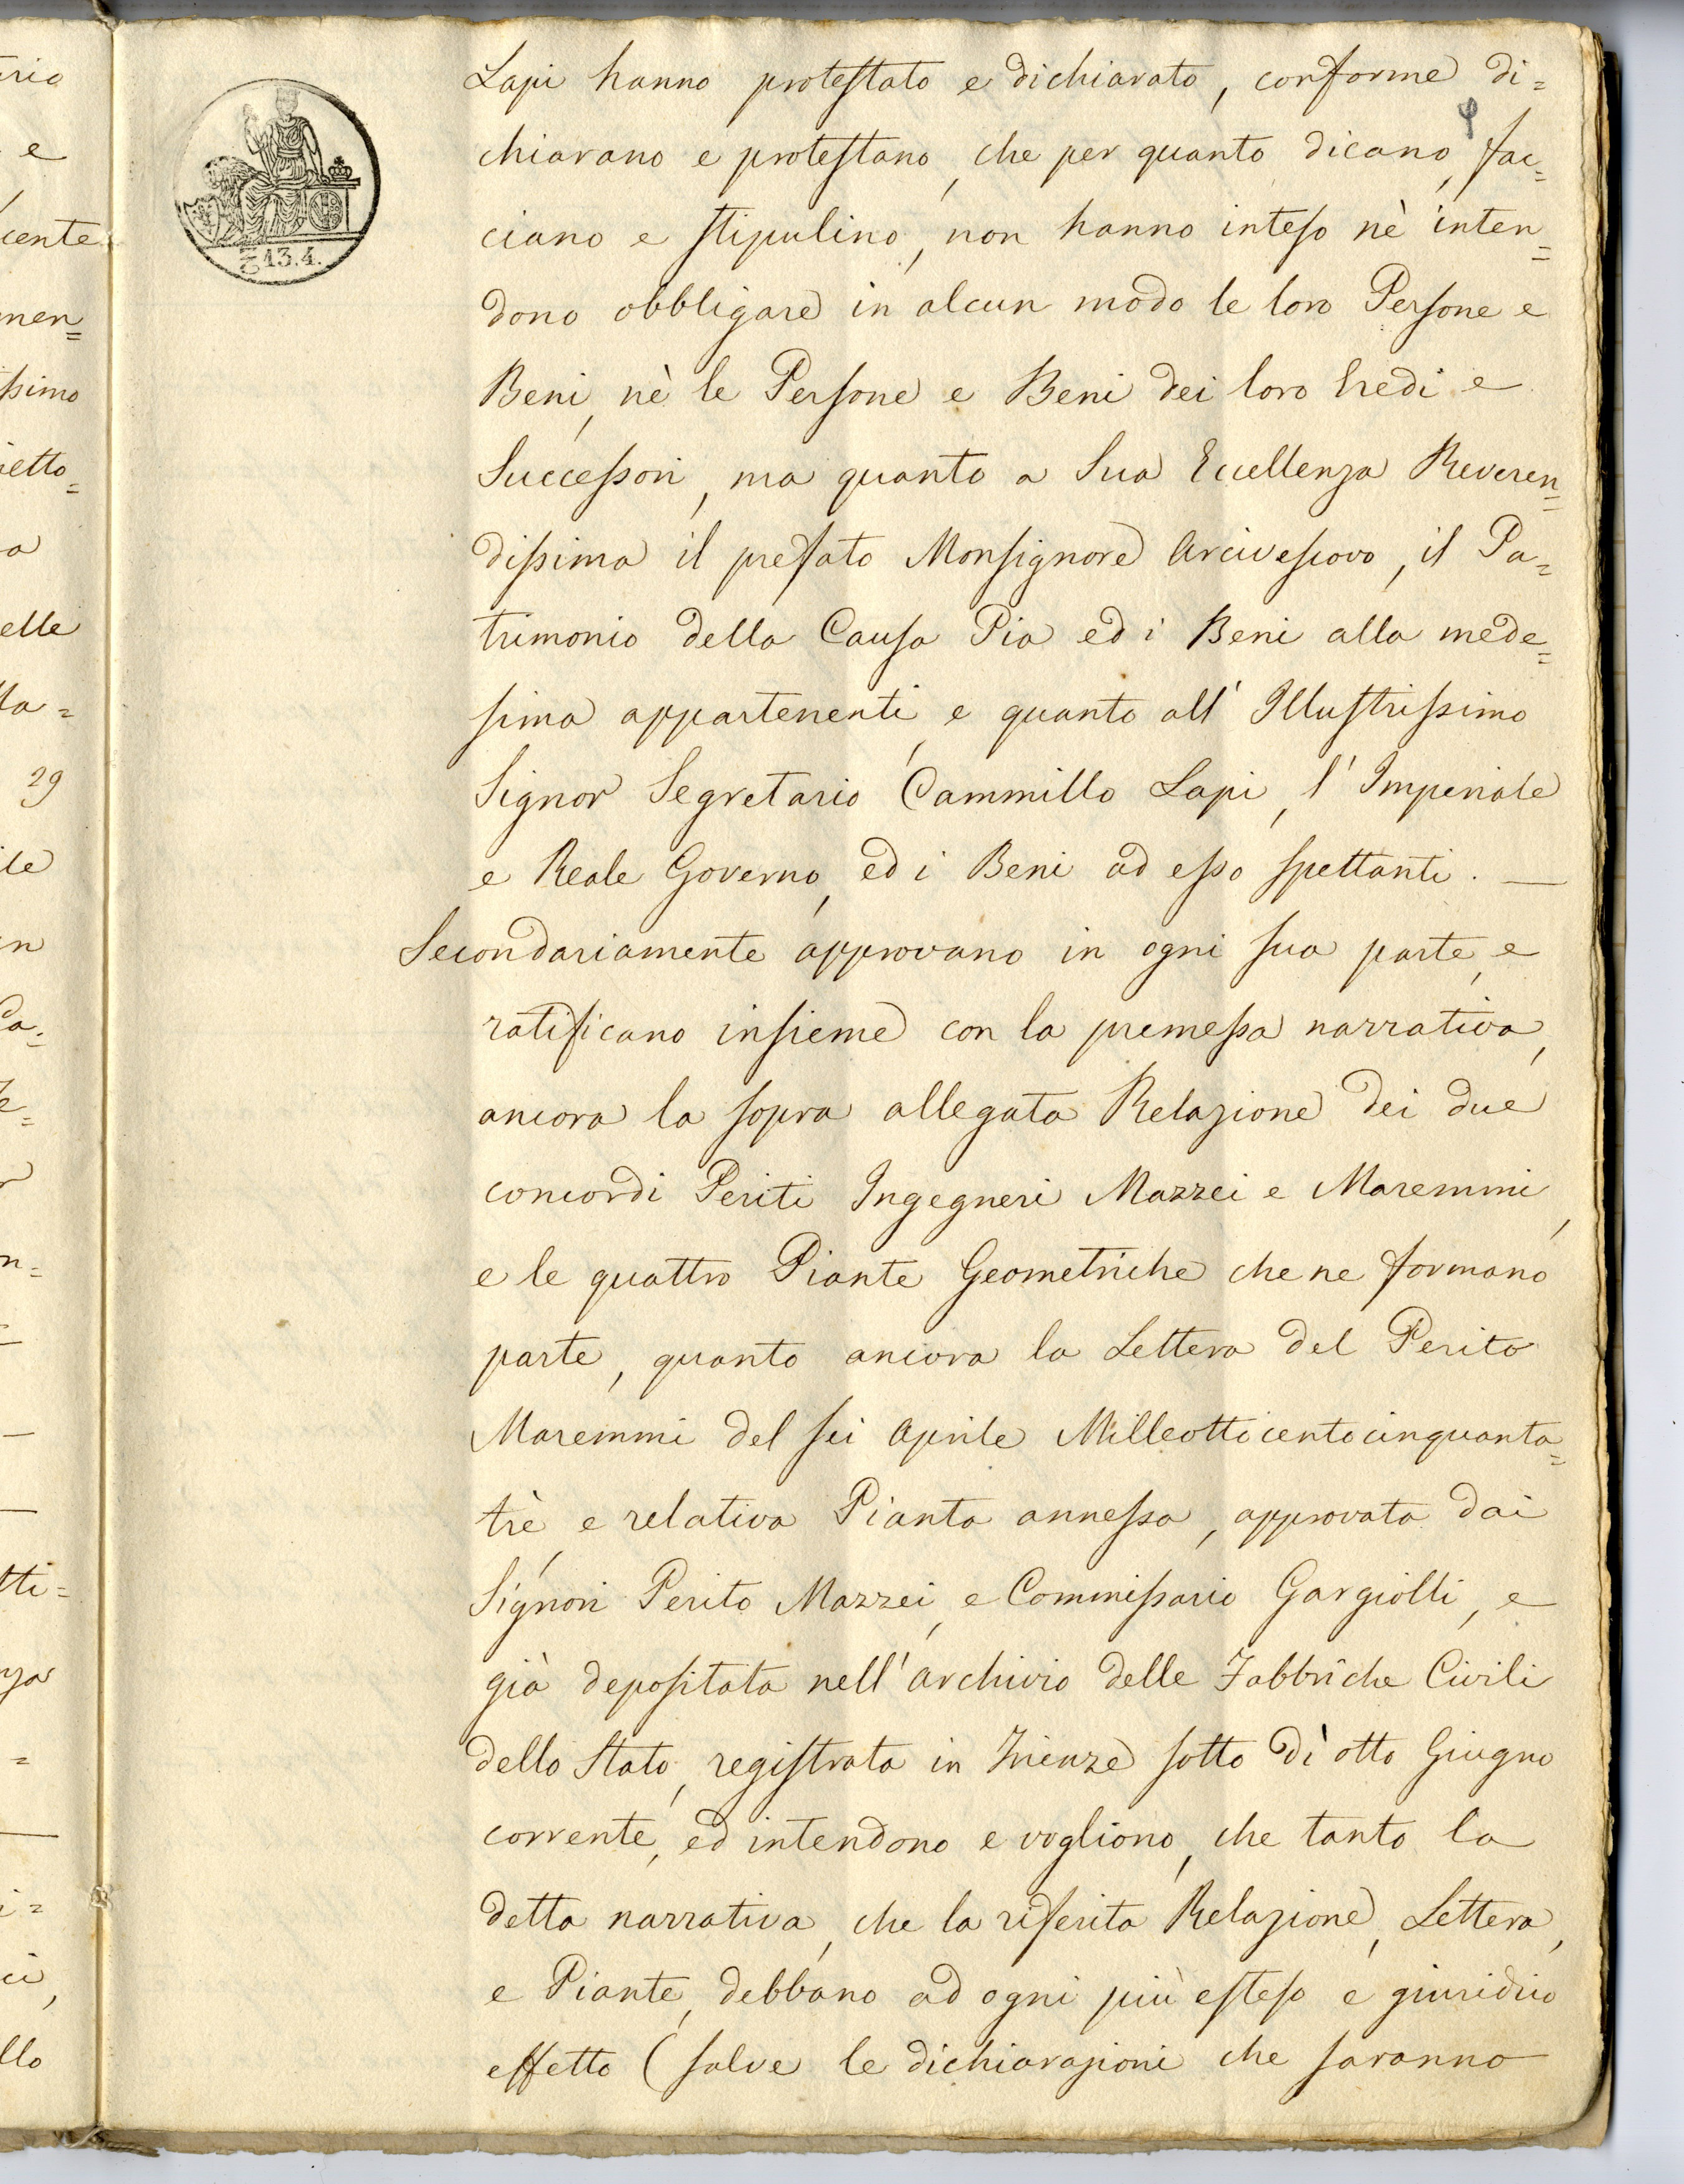 Lapi hanno protestato e dichiarato, conforme di=
chiarano e protestano, che per quanto dicano, fac=
ciano e stipulino, non hanno inteso nè inten=
dono obbligare in alcun modo le loro Persone e
Beni, nè le Persone e Beni dei loro Eredi e
Successori, ma quanto a Sua Eccellenza Reveren=
dissima il prefato Monsignore Arcivescovo, il Pa=
trimonio della Causa Pia ed i Beni alla mede=
sima appartenenti, e quanto all' Illustrissimo
Signor Segretario Cammillo Lapi, l' Imperiale
e Reale Governo, ed i Beni ad esso spettanti. —
Secondariamente approvano in ogni sua parte, e
ratificano insieme con la premessa narrativa,
ancora la sopra allegata Relazione dei due
concordi Periti Ingegneri Mazzei e Maremmi,
e le quattro Piante Geometriche che ne formano
parte, quanto ancora la Lettera del Perito
Maremmi del sei Aprile Milleotticentocinquanta=
trè, e relativa Pianta annessa, approvata dai
Signori Perito Mazzei, e Commissario Gargiolli, e
già depositata nell'Archivio delle Fabbriche Civili
dello Stato, registrata in Firenze sotto dì otto Giugno
corrente, ed intendono e vogliono, che tanto la
detta narrativa, che la riferita Relazione, Lettera,
e Piante, debbano ad ogni più esteso e giuridico
effetto (salve le dichiarazioni che saranno
13.4.
erio
e
cente
men=
ssimo
ietto=
a
elle
la=
29
ile
in
Ca=
n=
tti=
nza
=
i=
ci,
llo